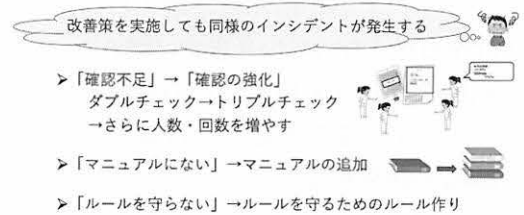 改善策を実施しても同様のインシデントが発生する
➢「確認不足」→「確認の強化」
ダブルチェック→トリプルチェック
→さらに人数・回数を増やす
➢「マニュアルにない」→マニュアルの追加
➢「ルールを守らない」→ルールを守るためのルール作り